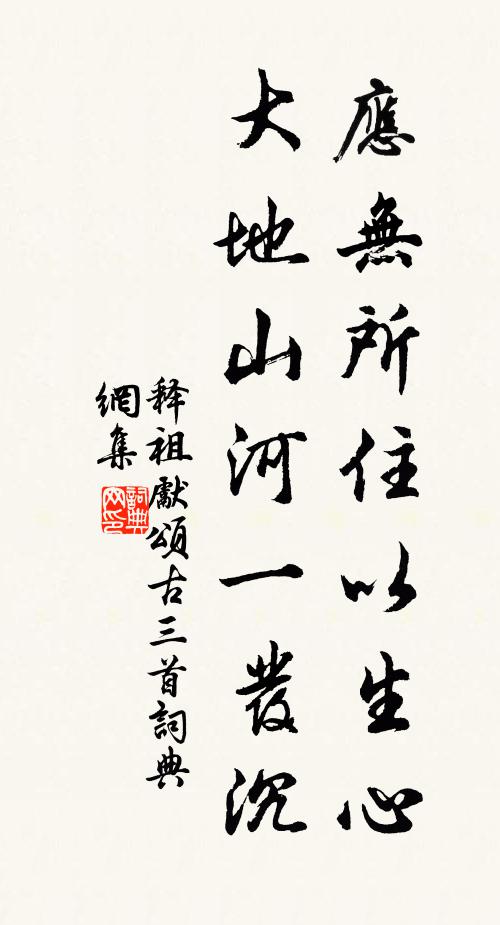 應無所住以生心
大地山河一發沉
释祖獻頌古三首詞典
網集
詞典
网印